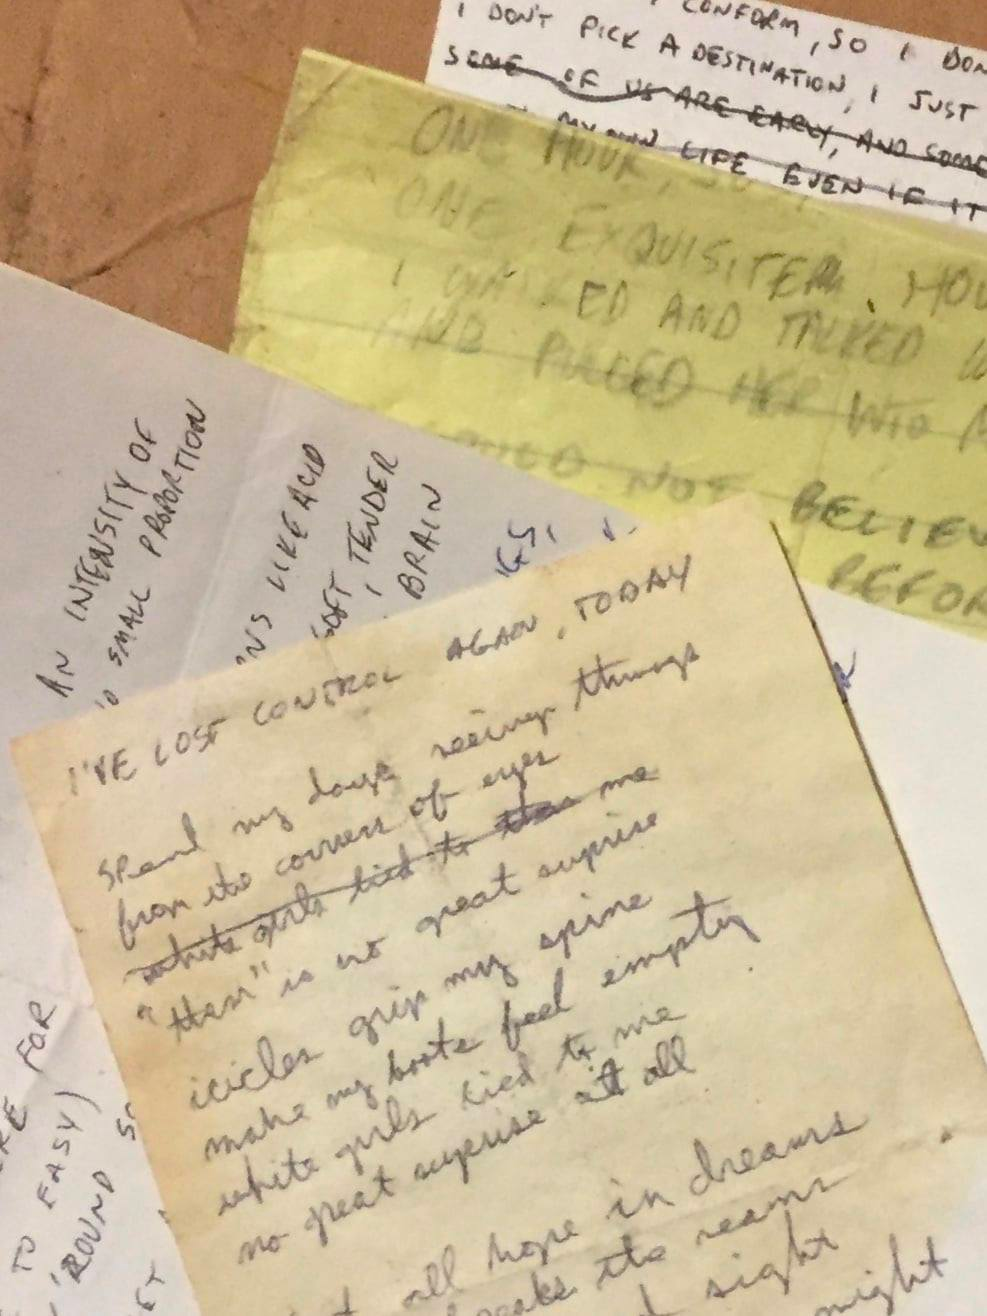 CONFORM, SO I DON
I DON'T PICK A DESTINATION, I JUST
SOME OF US ARE EARLY, AND SOME
MY OWN LIFE EVEN IF IT
ONE HOUR,
ONE EXQUISITE HOU
I WALKED AND TALKED W
AND PULLED HER
NOT BELIEV
BEFOR
AN INTENSITY OF
SMALL PROPORTION
NS LIKE ACID
SOFT, TENDER
BRAIN
GS,
I'VE LOST CONTROL AGAIN, TODAY
spend my days seeing things
from the corners of eyes
white girls lied to me
"then" is no great suprise
icicles grip my spine
make my boots feel empty
white girls lied to me
no great suprise at all
all hope in dreams
the reams
sight
night
FOR
TO EASY)
'ROUND